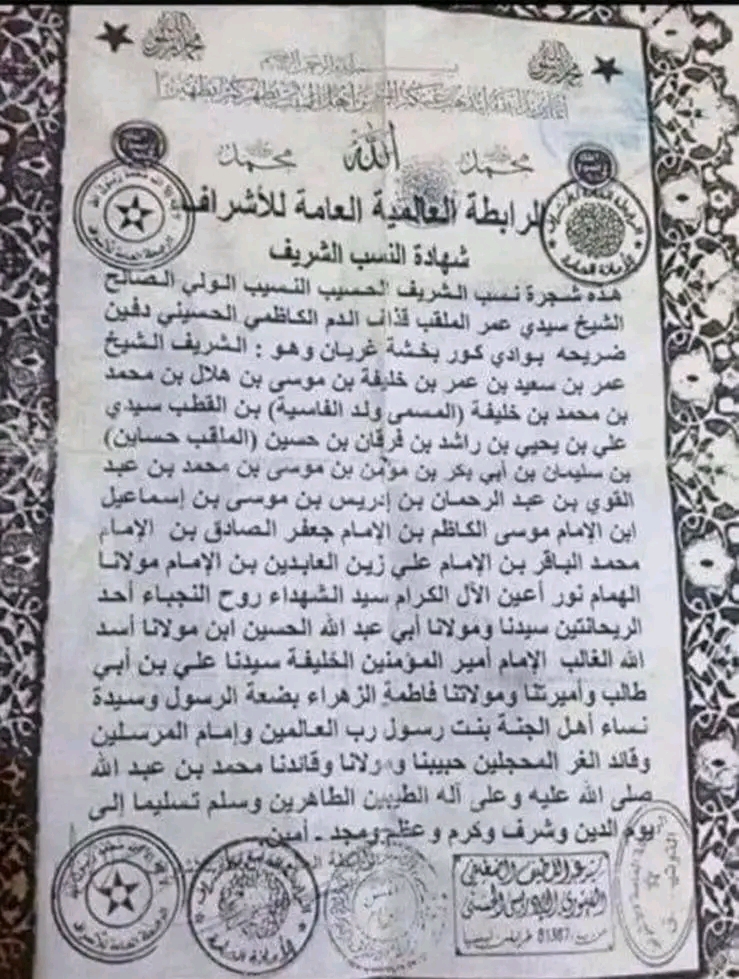 بسم الله الرحمن الرحيم
محمد الله محمد
الرابطة العالمية العامة للأشراف
شهادة النسب الشريف
هذه شجرة نسب الشريف الحسيب النسيب الولي الصالح
الشيخ سيدي عمر الملقب قذاف الدم الكاظمي الحسيني دفين
ضريحه بوادي كور بخشة غريان وهو : الشريف الشيخ
عمر بن سعيد بن عمر بن خليفة بن موسى بن هلال بن محمد
بن محمد بن خليفة (المسمى ولد الفاسية) بن القطب سيدي
علي بن يحيى بن راشد بن فرقان بن حسين (الملقب حساين)
بن سليمان بن أبي بكر بن مؤمن بن موسى بن محمد بن عبد
القوي بن عبد الرحمان بن إدريس بن موسى بن إسماعيل
ابن الإمام موسى الكاظم بن الإمام جعفر الصادق بن الإمام
محمد الباقر بن الإمام علي زين العابدين بن الإمام مولانا
الهمام نور أعين الآل الكرام سيد الشهداء روح النجباء أحد
الريحانتين سيدنا ومولانا أبي عبد الله الحسين ابن مولانا أسد
الله الغالب الإمام أمير المؤمنين الخليفة سيدنا علي بن أبي
طالب وأميرتنا ومولاتنا فاطمة الزهراء بضعة الرسول وسيدة
نساء أهل الجنة بنت رسول رب العالمين وإمام المرسلين
وقائد الغر المحجلين حبيبنا ومولانا وقائدنا محمد بن عبد الله
صلى الله عليه وعلى آله الطيبين الطاهرين وسلم تسليما إلى
يوم الدين وشرف وكرم وعظم ومجد - أمين.
الرابطة العالمية العامة للأشراف
الأمانة العامة